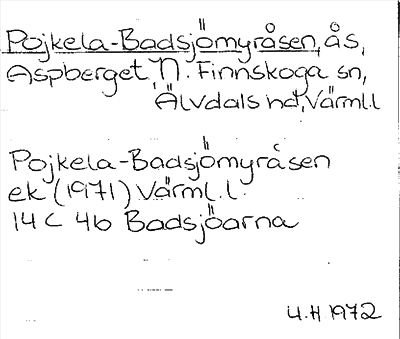 Pojkela-Badsjömyråsen, ås,
Aspberget, N. Finnskoga sn,
Älvdals hd, Värml.l
Pojkela-Badsjömyråsen
ek (1971) Värml.l.
14 C 4b Badsjöarna
U.H 1972